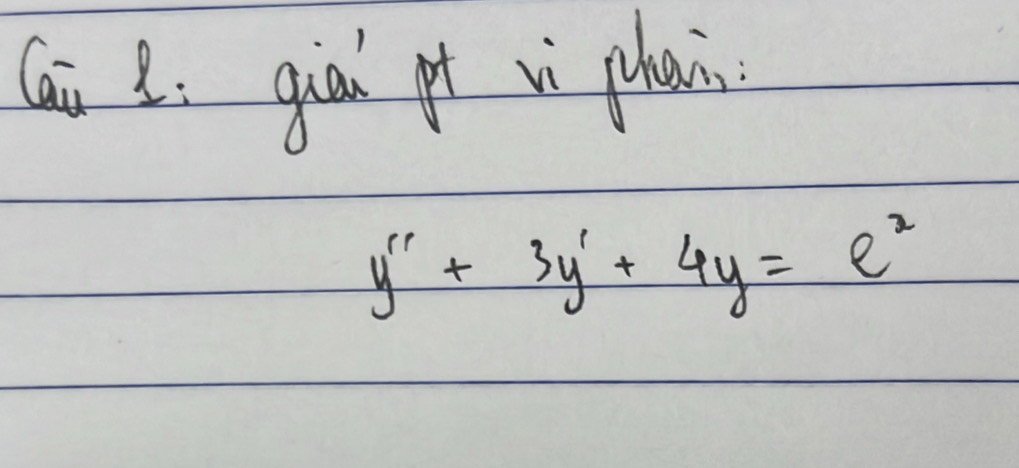 Câu 1: giải pt vi phân:
y'' + 3y' + 4y = e^x